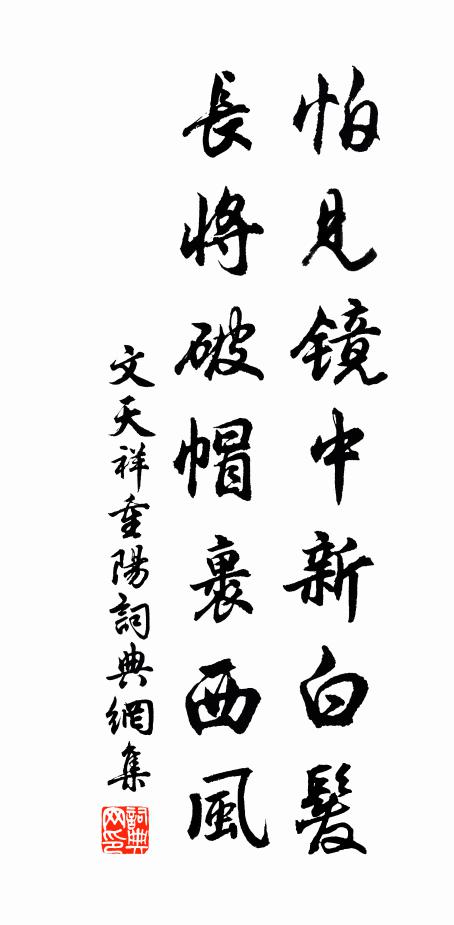 怕見鏡中新白髮
長將破帽裹西風
文天祥重陽詞典網集
詞典網印